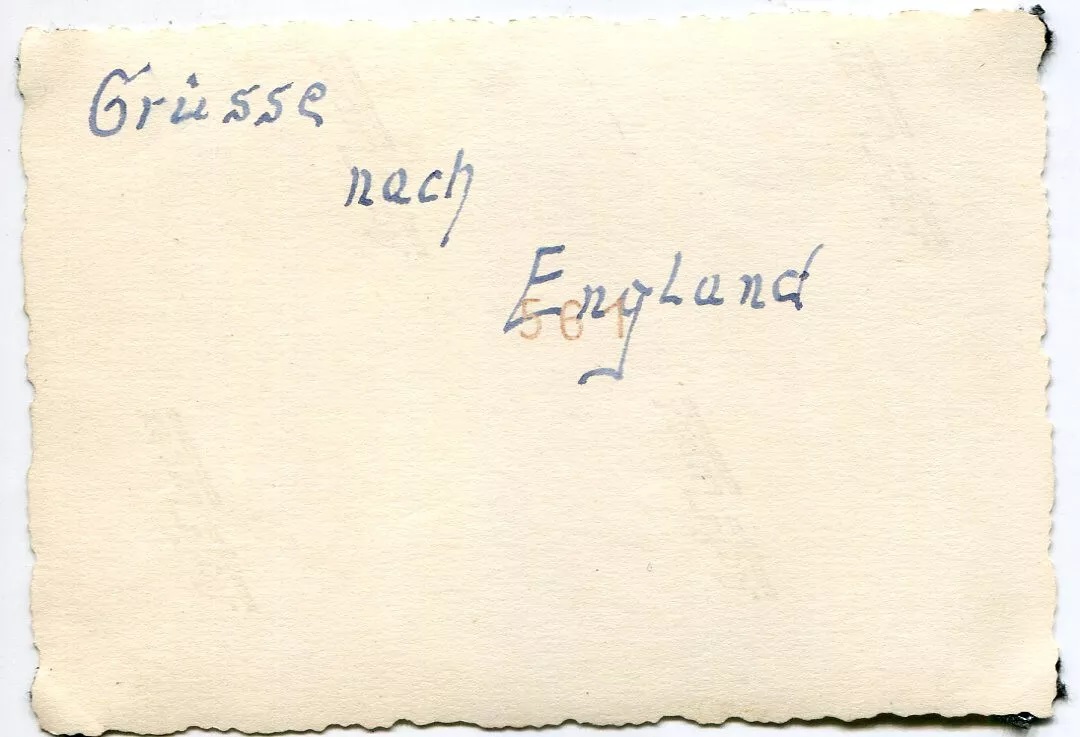 Grüsse
nach
England
561